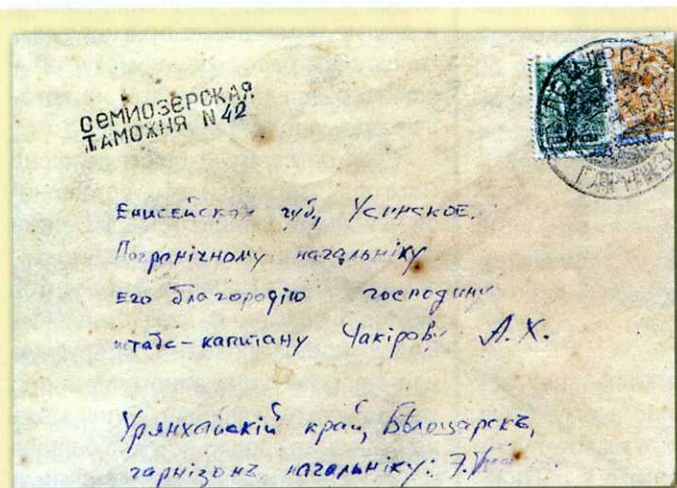 СЕМИОЗЕРСКАЯ
ТАМОЖНЯ N 42
Енисейская губ., Усинское.
Пограничному начальнику
Его благородию господину
штабс-капитану Чакірову А.Х.
Урянхайскій край, Бѣлоцарскъ,
гарнізонъ начальнику: